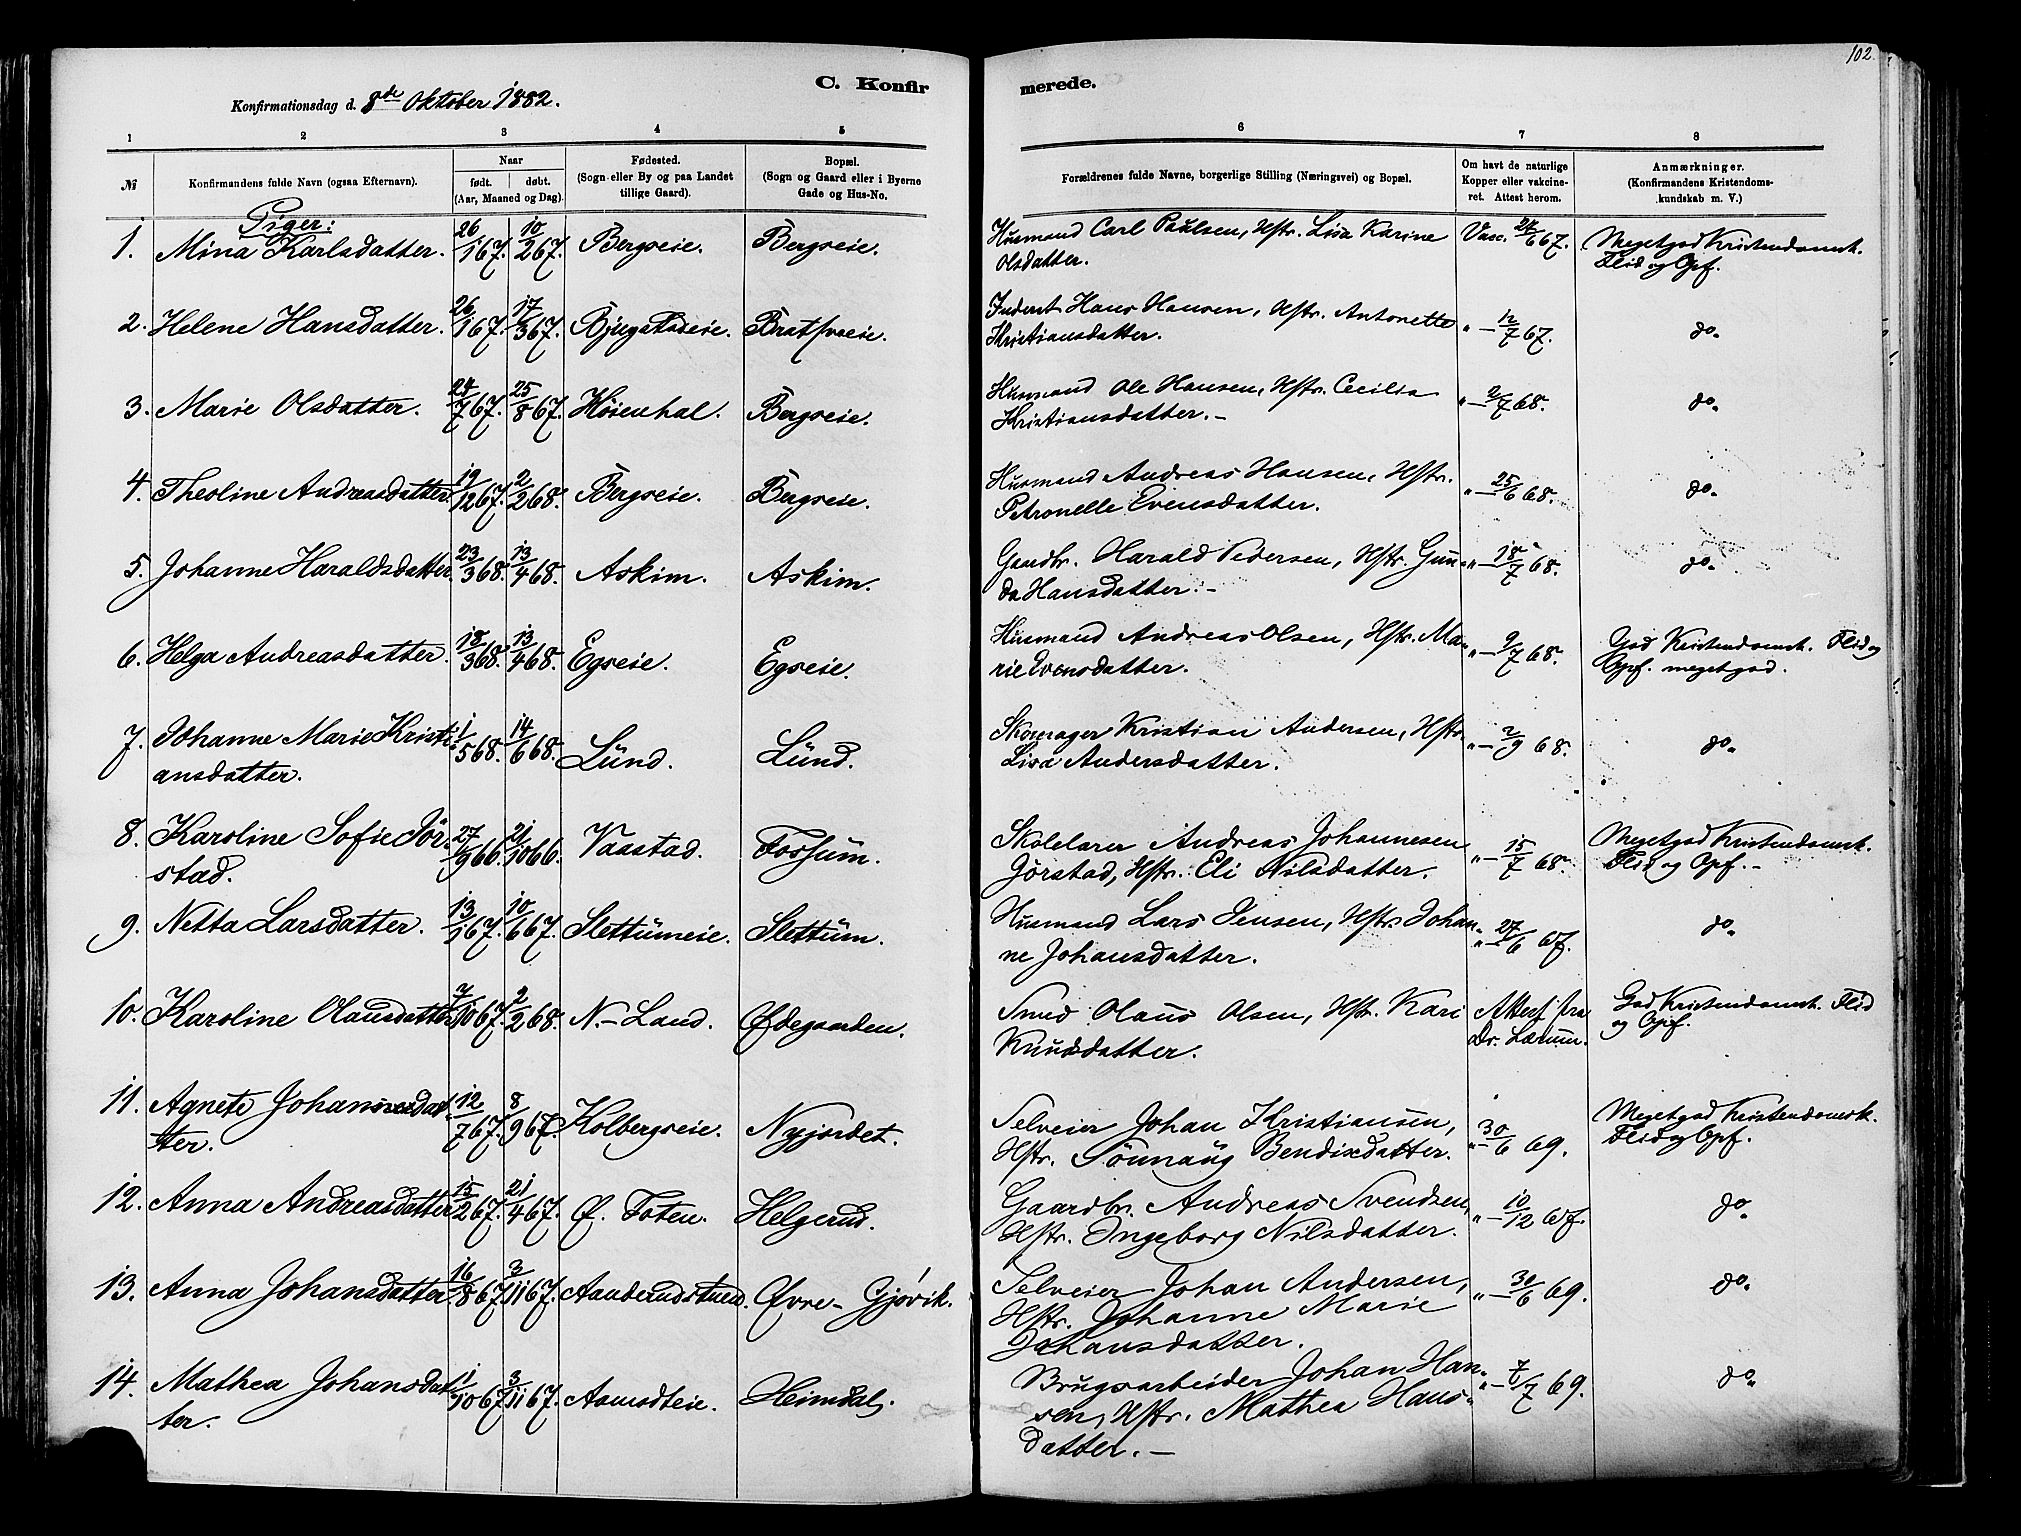 102.
C. Konfir
merede.
Konfirmationsdag d. 8de Oktober 1882.
1 2 3 4 5 6 7 8
№ Konfirmandens fulde Navn (ogsaa Efternavn). Naar født. døbt. (Aar, Maaned og Dag) Fødested. (Sogn eller By og paa Landet tillige Gaard). Bopæl. (Sogn og Gaard eller i Byerne Gade og Hus-No. Forældrenes fulde Navne, borgerlige Stilling (Næringsvei) og Bopæl. Om havt de naturlige Kopper eller vakcineret. Attest herom. Anmærkninger. (Konfirmandens Kristendomskundskab m. V.)
Piger:
1. Mina Karlsdatter. 26/1 67. 10/2 67. Bergseie. Bergseie. Husmand Carl Paulsen, Hstr. Lisa Karine
Olsdatter. Vacc. 24/6 67. Megetgod Kristendomsk.
Flid og Opf.
2. Helene Hansdatter. 26/1 67. 17/3 67. Bjugstadeie. Bratfoseie. Inderst Hans Hansen, Hstr. Antonette
Kristiansdatter. " — 12/7 67. do.
3. Marie Olsdatter. 24/7 67. 25/8 67. Köienhal. Bergseie. Husmand Ole Hansen, Hstr. Cecilia
Kristiansdatter. — " — 2/7 68. do.
4. Theoline Andreasdatter 19/12 67. 2/2 68. Bergseie. Bergseie. Husmand Andreas Hansen, Hstr.
Petronelle Evensdatter. " — 25/6 68. do.
5. Johanne Haraldsdatter. 23/3 68. 13/4 68. Askim. Askim. Gaadbr. Harald Pedersen, Hstr. Gun-
da Hansdatter. — " — 18/7 68. do.
6. Helga Andreasdatter. 18/3 68. 13/4 68. Egseie. Egseie. Husmand Andreas Olsen, Hstr. Ma-
rie Evensdatter. " — 9/7 68. God Kristendomsk. Flid og
Opf. megetgod.
7. Johanne Marie Kristi-
ansdatter. 1/5 68. 14/6 68. Lünd. Lünd. Skomager Kristian Andersen, Hstr.
Lisa Andersdatter. " — 2/9 68. do.
8. Karoline Sofie Jör-
stad. 27/9 66. 21/10 66. Vaastad. Fossum. Skolelærer Andreas Johannesen
Jörstad, Hstr. Eli Nilsdatter. " — 15/7 68. Megetgod Kristendomsk.
Flid og Opf. —
9. Netta Larsdatter. 13/1 67. 10/6 67. Slettümeie. Slettüm. Husmand Lars Jensen, Hstr. Johan-
ne Johansdatter. " — 27/6 67. do.
10. Karoline Olausdatter 7/10 67. 2/2 68. N.-Land. Ødegaarden. Smed Olaus Olsen, Hstr. Kari
Knudsdatter. Attest fra
Dr. Lærum. God Kristendomsk. Flid
og Opf.
11. Agnete Johannesdat-
ter. 12/7 67. 8/9 67. Kolbergseie. Nyjordet. Selveier Johan Kristiansen,
Hstr. Sönnaüg Bendixdatter. " — 30/6 69. Megetgod Kristendomsk.
Flid og Opf.
12. Anna Andreasdatter 15/2 67. 21/4 67. Ø. Toten. Helgerud. Gaardbr. Andreas Svendsen,
Hstr. Ingeborg Nilsdatter. " — 10/12 67. do.
13. Anna Johansdatter. 16/8 67. 3/11 67. Aanderudstuen. Øvre-Gjövik. Selveier Johan Andersen,
Hstr. Johanne Marie
Johansdatter. " — 30/6 69. do.
14. Mathea Johansdat-
ter. 1/10 67. 3/11 67. Aamodteie. Heimdal. Brugsarbeider Johan Han-
sen, Hstr. Mathea Hans-
datter. — " — 7/7 69. do.